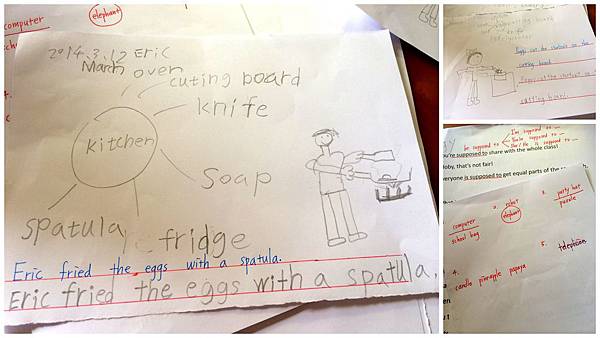 computer
elephant
2014.3.12 Eric
March
oven
cuting board
knife
kitchen
soap
spatula
fridge
Eric fried the eggs with a spatula.
Eric fried the eggs with a spatula.
cutting board
cutting board
be supposed to
I'm supposed to
You're supposed to
She/He is supposed to
you're supposed to share with the whole class!
Toby, that's not fair!
everyone is supposed to get equal parts of the
computer
school bag
2. robot
elephant
3. party hat
puzzle
4.
candle pineapple papaya
5. telephone